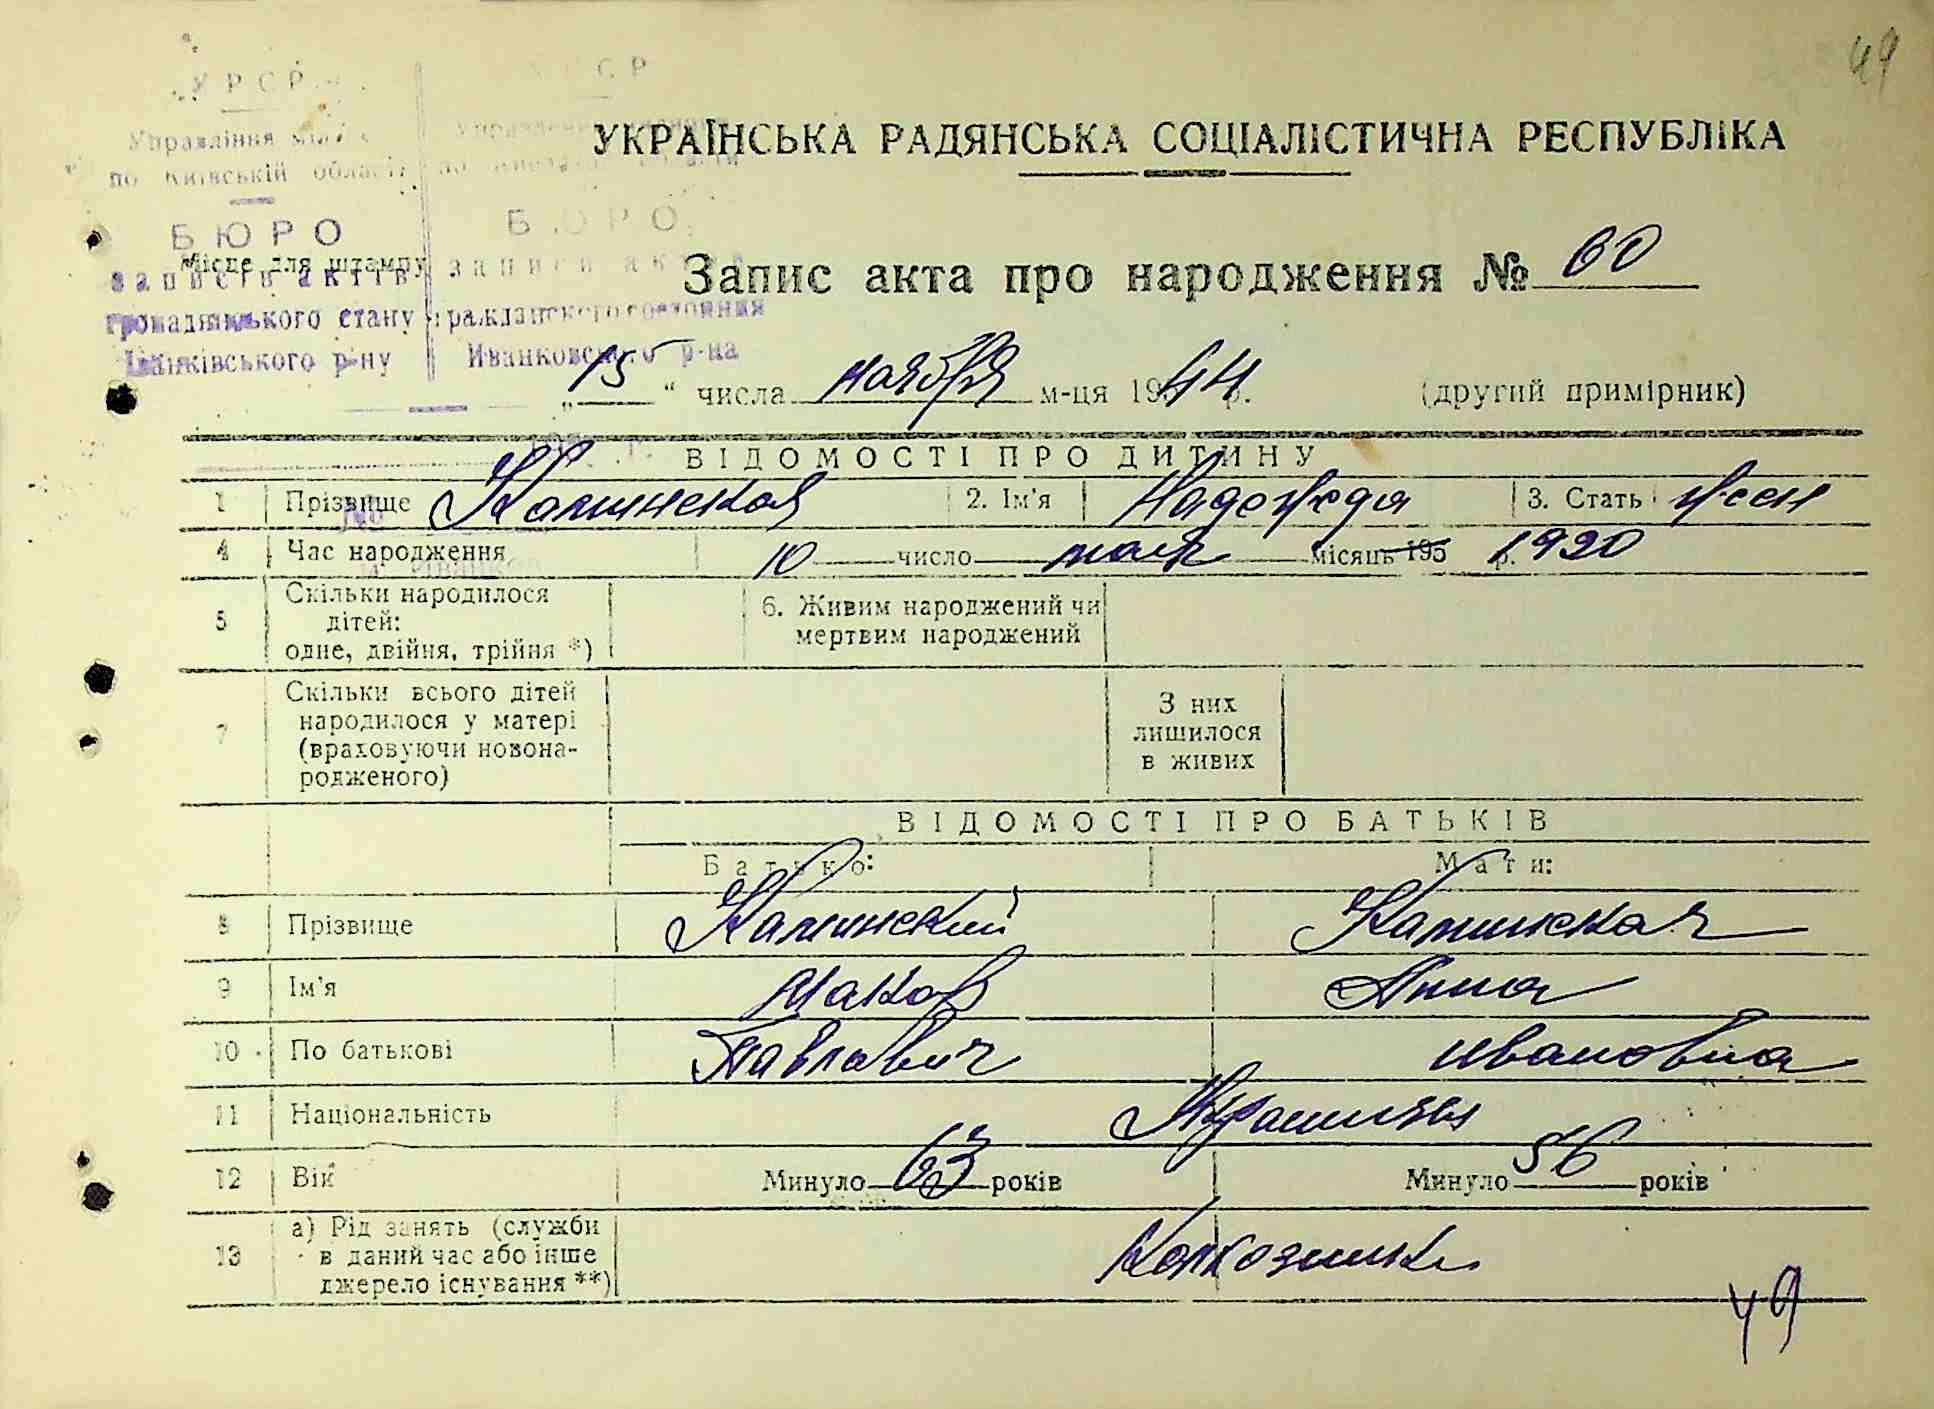 49
УРСР
Управління
по Київській області
БЮРО
записів актів
громадянського стану
Іванківського р-ну
БЮРО
записи актов
гражданского состояния
Иванковского р-на
Місце для штампу
УКРАЇНСЬКА РАДЯНСЬКА СОЦІАЛІСТИЧНА РЕСПУБЛІКА
Запис акта про народження № 60
„ 15 “ числа ноября м-ця 1944 р. (другий примірник)
ВІДОМОСТІ ПРО ДИТИНУ
1 Прізвище Каминская 2. Ім'я Надежда 3. Стать жен
4 Час народження 10 число мая місяць 195 р. 1920
5 Скільки народилося
дітей:
одне, двійня, трійня *)
6. Живим народжений чи
мертвим народжений
7 Скільки всього дітей
народилося у матері
(враховуючи новона-
родженого)
З них
лишилося
в живих
ВІДОМОСТІ ПРО БАТЬКІВ
Батько: Мати:
8 Прізвище Каминский Каминская
9 Ім'я Яков Анна
10 По батькові Павлович Ивановна
11 Національність Украинцы
12 Вік Минуло 63 років Минуло 56 років
13 а) Рід занять (служби
в даний час або інше
джерело існування **)
Колхозники
49